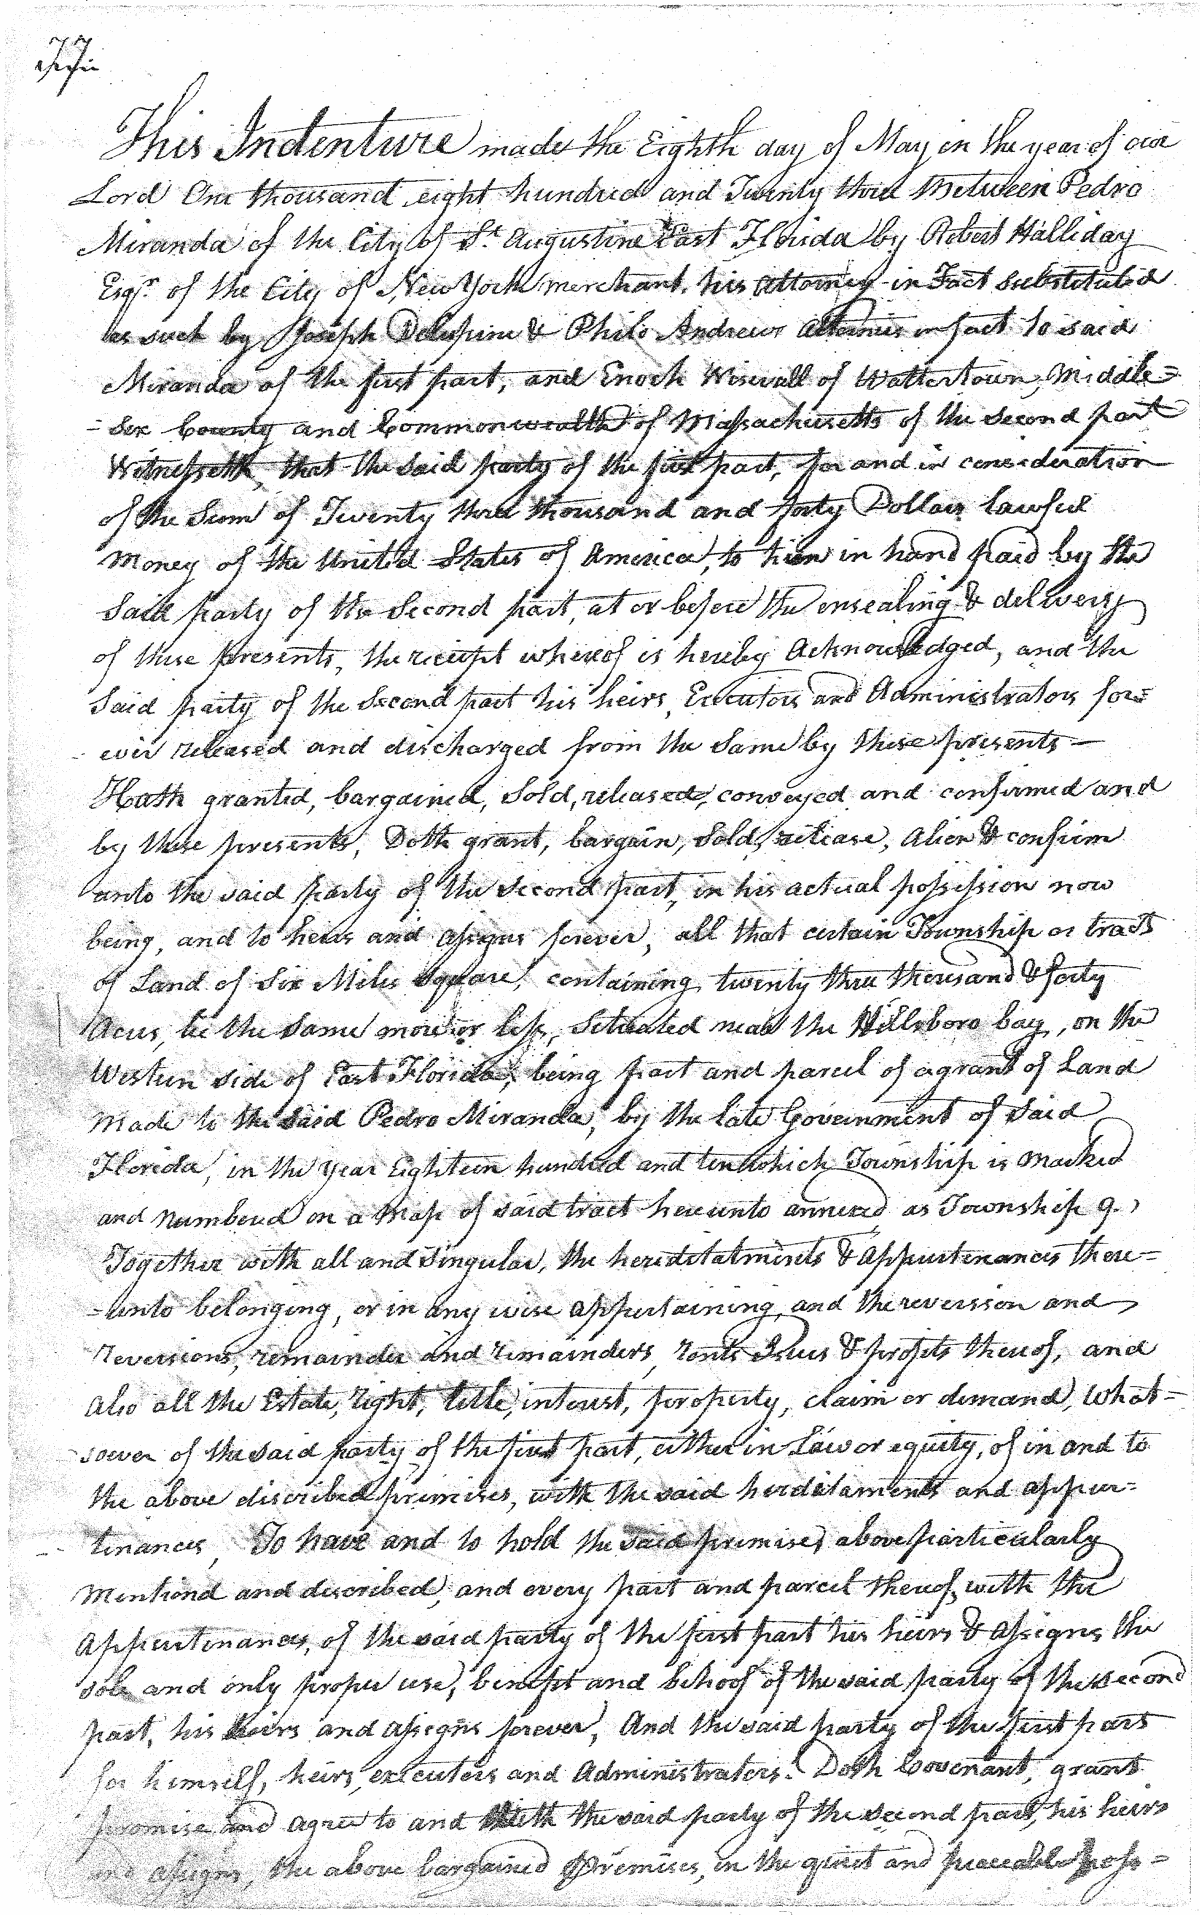 This Indenture made the Eighth day of May in the year of our
Lord One thousand eight hundred and Twenty three Between Pedro
Miranda of the City of St Augustine East Florida by Robert Halliday
Esqr. of the City of New York merchant, his Attorney in Fact Substituted
as such by Joseph Delespine & Philo Andrews Attornies in fact to said
Miranda of the first part, and Enoch Wiswall of Wattertown, Middle=
-sex County and Commonwealth of Massachusetts of the second part
Witnesseth, that the said party of the first part, for and in consideration
of the Sum of Twenty three thousand and forty Dollars lawful
Money of the United States of America, to him in hand paid by the
Said party of the Second part, at or before the ensealing & delivery
of these presents, the receipt whereof is hereby Acknowledged, and the
Said party of the Second part his heirs, Executors and Administrators for=
ever released and discharged from the Same by these presents —
Hath granted, bargained, Sold, released, conveyed and confirmed and
by these presents, Doth grant, bargain, Sold, release, Alien & confirm
unto the said party of the Second part, in his actual possession now
being, and to heirs and assigns forever, all that certain Township or tract
of Land of Six Miles square, containing twenty three thousand & forty
Acres, be the Same more or less, Situated near the Hillsboro bay, on the
Western side of East Florida, being part and parcel of a grant of Land
Made to the said Pedro Miranda, by the late Government of Said
Florida, in the year Eighteen hundred and ten which Township is Marked
and Numbered on a Map of said tract hereunto annexed as Township 9.
Together with all and Singular, the hereditatments & Appurtenances there=
=unto belonging, or in any wise appertaining, and the reverssion and
reversions, remainder and remainders, rents Issues & profits thereof, and
also all the Estate, right, title, interest, property, claim or demand, What=
soever of the said party of the first part, either in Law or equity, of in and to
the above discribed premises, with the said herditaments and appur=
tinances, To have and to hold the said premises above particularly
Mentiond and discribed, and every part and parcel thereof, with the
Appurtenances, of the said party of the first part his heirs & assigns the
sole and only proper use, benefit and behoof of the said party of the second
part, his heirs and assigns forever, And the said party of the first part
for himself, heirs, executors and Administrators. Doth Covenant, grant
promise and agree to and with the said party of the second part, his heirs
and assigns, the above bargained Premises, in the quiet and peaceable poss=